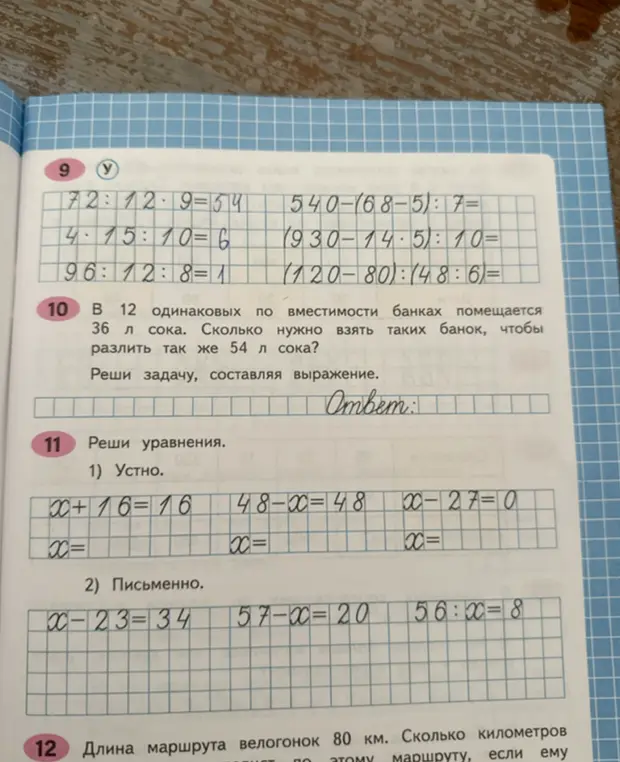 9 У
72 : 12 · 9 = 54 540 − (68 − 5) : 7 =
4 · 15 : 10 = 6 (930 − 14 · 5) : 10 =
96 : 12 : 8 = 1 (120 − 80) : (48 : 6) =
10 В 12 одинаковых по вместимости банках помещается
36 л сока. Сколько нужно взять таких банок, чтобы
разлить так же 54 л сока?
Реши задачу, составляя выражение.
Ответ:
11 Реши уравнения.
1) Устно.
x + 16 = 16 48 − x = 48 x − 27 = 0
x = x = x =
2) Письменно.
x − 23 = 34 57 − x = 20 56 : x = 8
12 Длина маршрута велогонок 80 км. Сколько километров
по этому маршруту, если ему